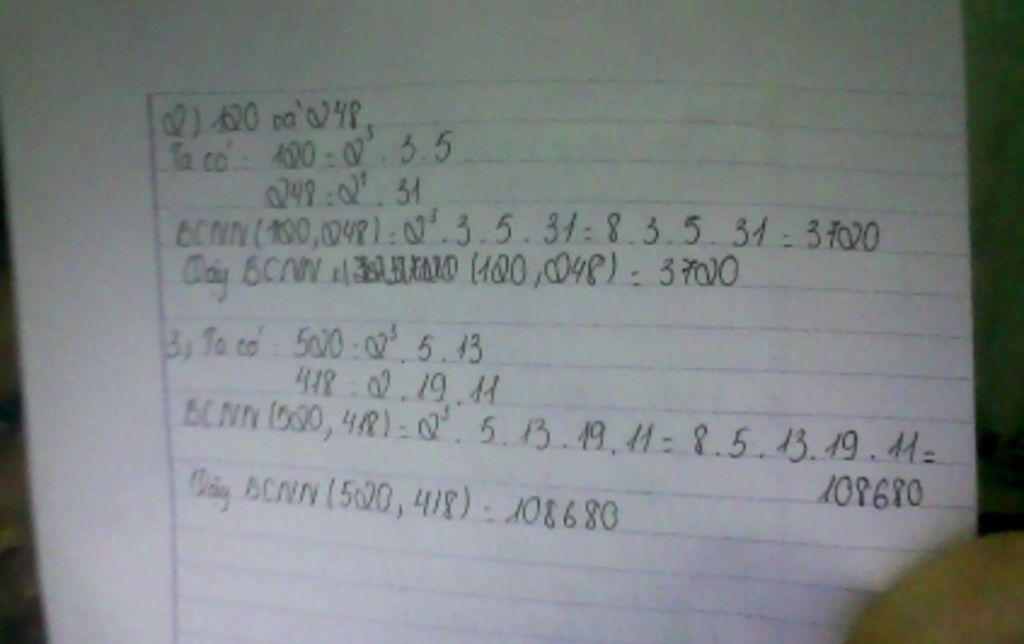 2) 120 và 248,
Ta có: 120 = 2³ . 3 . 5
248 = 2³ . 31
BCNN (120, 248) = 2³ . 3 . 5 . 31 = 8 . 3 . 5 . 31 = 3720
Vậy BCNN (120, 248) = 3720
3, Ta có: 520 = 2³ . 5 . 13
418 = 2 . 19 . 11
BCNN (520, 418) = 2³ . 5 . 13 . 19 . 11 = 8 . 5 . 13 . 19 . 11 =
108680
Vậy BCNN (520, 418) = 108680